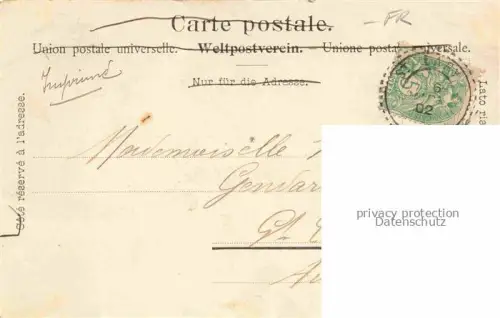 FR
Carte postale.
Union postale universelle. — Weltpostverein. — Unione postale universale.
Imprimé
Nur für die Adresse.
Côté réservé à l'adresse.
Lato ris
02
Mademoiselle
Gendar
St
privacy protection
Datenschutz